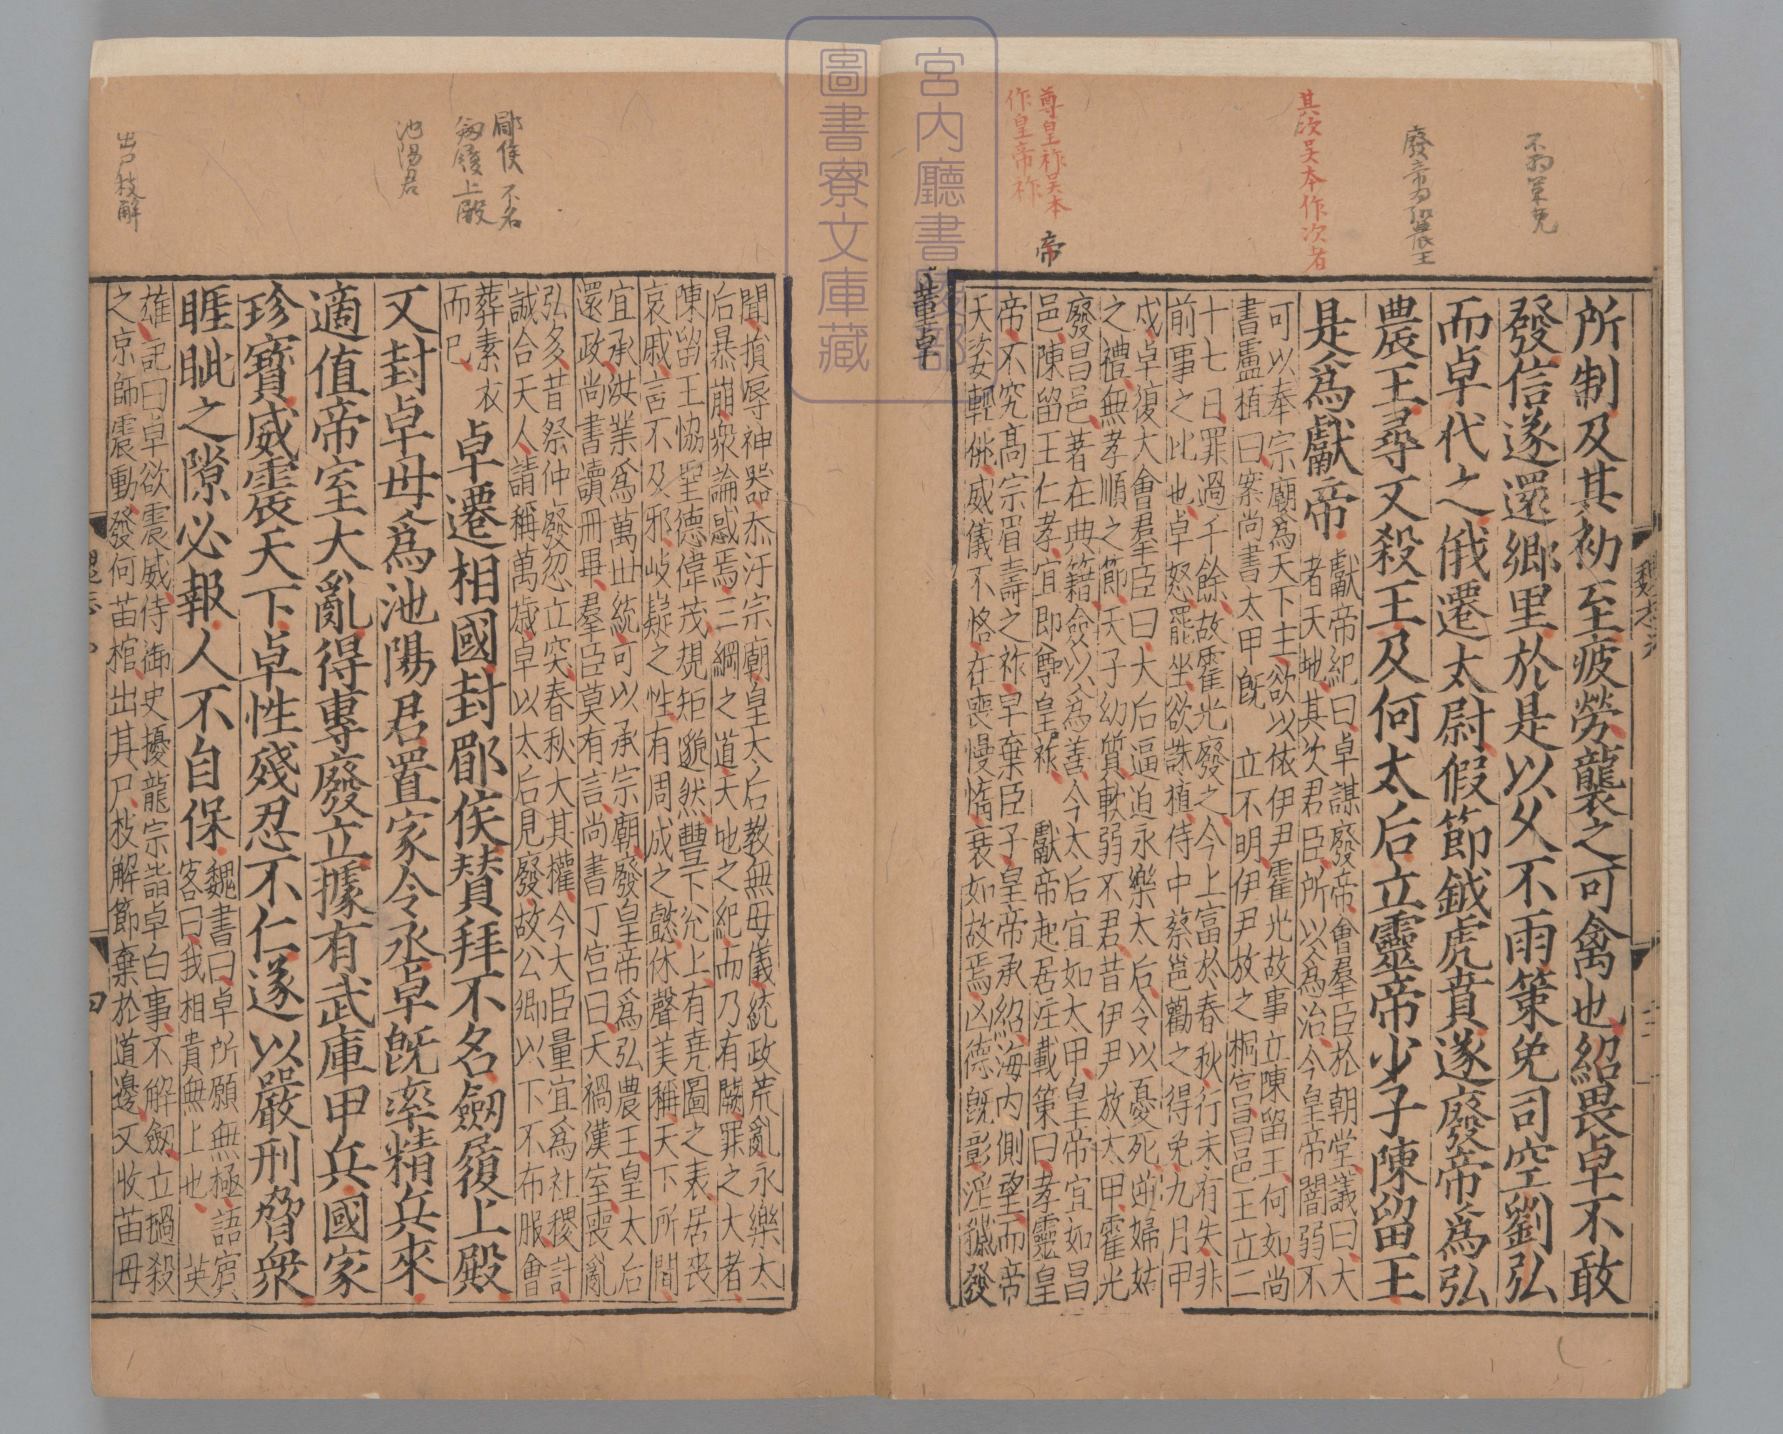 不雨策免
廢帝為弘農王
其次吴本作次者
尊皇祚吴本
作皇帝祚
帝
所制及其初至疲勞襲之可禽也紹畏卓不敢
發信遂還鄉里於是以久不雨策免司空劉弘
而卓代之俄遷太尉假節鉞虎賁遂廢帝爲弘
農王尋又殺王及何太后立靈帝少子陳留王
是爲獻帝
獻帝紀曰卓謀廢帝會羣臣於朝堂議曰大
者天地其次君臣所以爲治今皇帝闇弱不
可以奉宗廟爲天下主欲以依伊尹霍光故事立陳留王何如尚
書盧植曰案尚書太甲旣立不明伊尹放之桐宫昌邑王立二
十七日罪過千餘故霍光廢之今上富於春秋行未有失非
前事之比也卓怒罷坐欲誅植侍中蔡邕勸之得免九月甲
戌卓復大會羣臣曰大后逼迫永樂太后令以憂死逆婦姑
之禮無孝順之節天子幼質軟弱不君昔伊尹放太甲霍光
廢昌邑著在典籍僉以爲善今太后宜如太甲皇帝宜如昌
邑陳留王仁孝宜即尊皇祚 獻帝起居注載策曰孝靈皇
帝不究髙宗眉壽之祚早棄臣子皇帝承紹海内側望而帝
天姿輕佻威儀不恪在喪慢惰衰如故焉凶德旣彰淫穢發
董卓
宮内廳書陵部
圖書寮文庫藏
郿侯 不名
劔履上殿
池陽君
出尸枝解
聞損辱神器忝汙宗廟皇太后教無母儀統政荒亂永樂太
后暴崩衆論惑焉三綱之道天地之紀而乃有闕罪之大者
陳留王協聖德偉茂規矩邈然豐下兊上有堯圖之表居喪
哀戚言不及邪岐嶷之性有周成之懿休聲美稱天下所聞
宜承洪業爲萬世統可以承宗廟廢皇帝爲弘農王皇太后
還政尚書讀冊畢羣臣莫有言尚書丁宫曰天禍漢室喪亂
弘多昔祭仲廢忽立突春秋大其權今大臣量宜爲社稷計
誠合天人請稱萬歳卓以太后見廢故公卿以下不布服會
葬素衣
而已
卓遷相國封郿侯賛拜不名劔履上殿
又封卓母爲池陽君置家令丞卓旣率精兵來
適值帝室大亂得專廢立據有武庫甲兵國家
珍寶威震天下卓性殘忍不仁遂以嚴刑脅衆
睚眦之隙必報人不自保
魏書曰卓所願無極語賔
客曰我相貴無上也 英
雄記曰卓欲震威侍御史擾龍宗詣卓白事不解劔立撾殺
之京師震動發何苗棺出其尸枝解節棄於道邊又收苗母